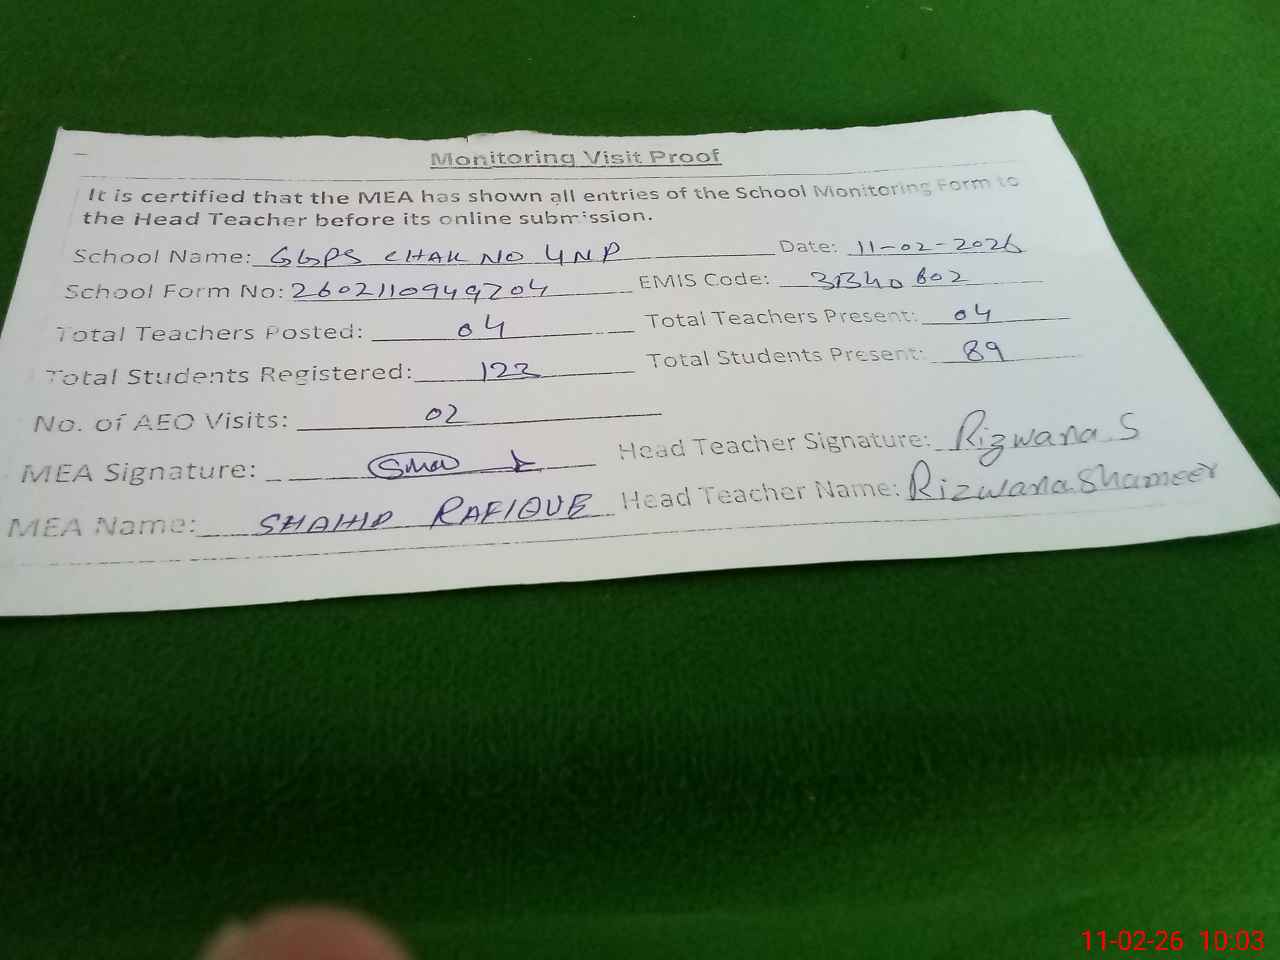 Monitoring Visit Proof
It is certified that the MEA has shown all entries of the School Monitoring Form to
the Head Teacher before its online submission.
School Name: GGPS CHAK NO 4NP Date: 11-02-2026
School Form No: 2602110949204 EMIS Code: 31340602
Total Teachers Posted: 04 Total Teachers Present: 04
Total Students Registered: 123 Total Students Present: 89
No. of AEO Visits: 02
MEA Signature: Head Teacher Signature: Rizwana S
MEA Name: SHAHID RAFIQUE Head Teacher Name: Rizwana Shameer
11-02-26 10:03